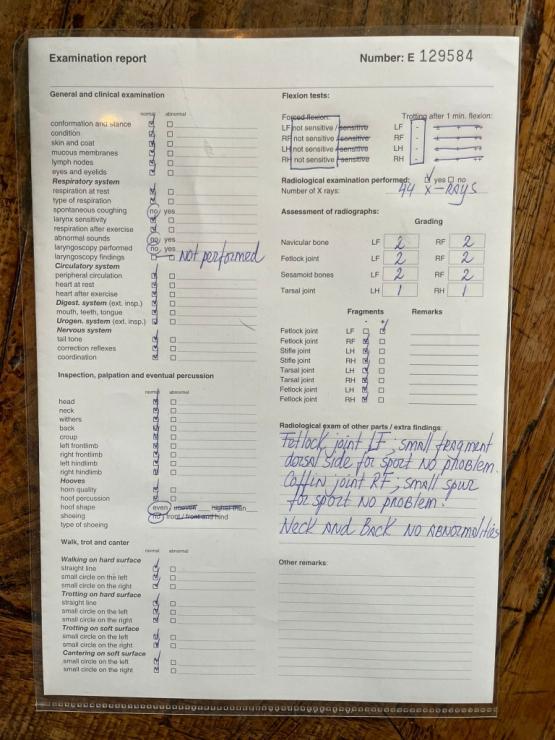 Examination report
Number: E 129584
General and clinical examination
normal abnormal
conformation and stance
condition
skin and coat
mucous membranes
lymph nodes
eyes and eyelids
Respiratory system
respiration at rest
type of respiration
spontaneous coughing no/ yes
larynx sensitivity
respiration after exercise
abnormal sounds no/ yes
laryngoscopy performed no/ yes
laryngoscopy findings Not performed
Circulatory system
peripheral circulation
heart at rest
heart after exercise
Digest. system (ext. insp.)
mouth, teeth, tongue
Urogen. system (ext. insp.)
Nervous system
tail tone
correction reflexes
coordination
Inspection, palpation and eventual percussion
normal abnormal
head
neck
withers
back
croup
left frontlimb
right frontlimb
left hindlimb
right hindlimb
Hooves
horn quality
hoof percussion
hoof shape even/ uneven higher than
shoeing no/ front / front and hind
type of shoeing
Walk, trot and canter
normal abnormal
Walking on hard surface
straight line
small circle on the left
small circle on the right
Trotting on hard surface
straight line
small circle on the left
small circle on the right
Trotting on soft surface
small circle on the left
small circle on the right
Cantering on soft surface
small circle on the left
small circle on the right
Flexion tests:
Forced flexion: Trotting after 1 min. flexion:
LF not sensitive / sensitive LF -
RF not sensitive / sensitive RF -
LH not sensitive / sensitive LH -
RH not sensitive / sensitive RH -
Radiological examination performed: yes no
Number of X rays: 44 X-RAYS
Assessment of radiographs:
Grading
Navicular bone LF 2 RF 2
Fetlock joint LF 2 RF 2
Sesamoid bones LF 2 RF 2
Tarsal joint LH 1 RH 1
Fragments Remarks
- +
Fetlock joint LF
Fetlock joint RF
Stifle joint LH
Stifle joint RH
Tarsal joint LH
Tarsal joint RH
Fetlock joint LH
Fetlock joint RH
Radiological exam of other parts / extra findings:
Fetlock joint LF; small fragment
dorsal side for sport NO PROBLEM.
Coffin joint RF; small spur
for sport NO PROBLEM!
NECK AND BACK NO ABNORMALITIES
Other remarks: